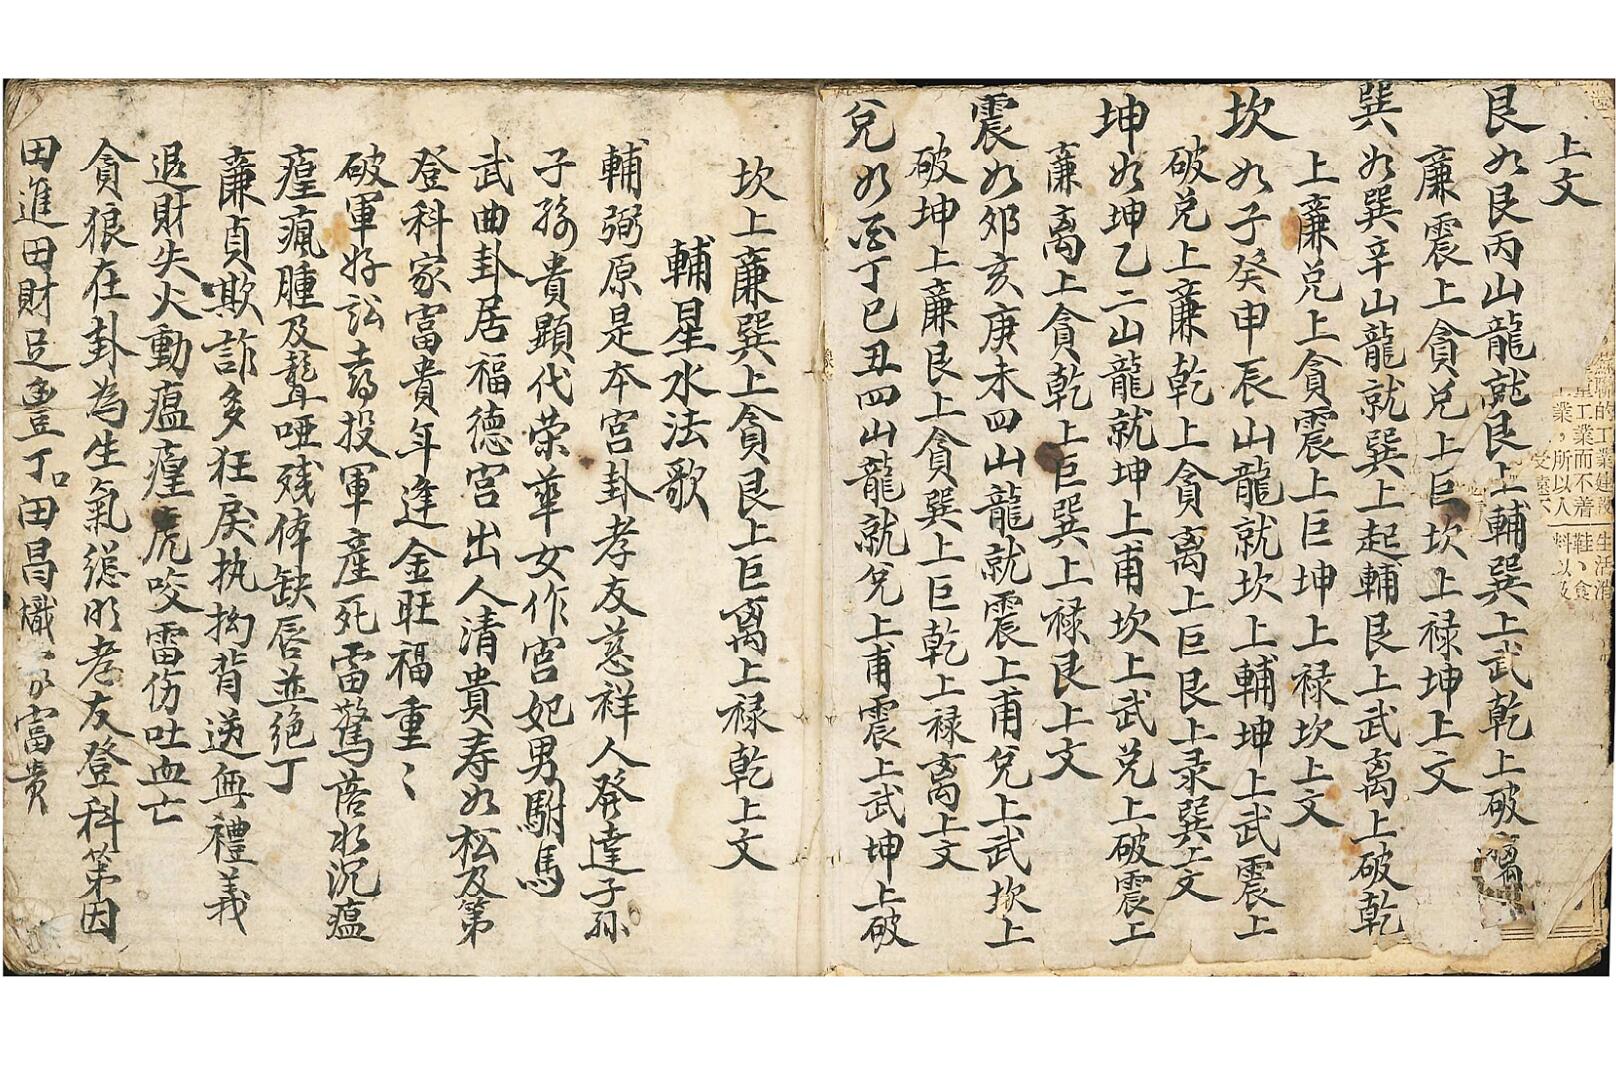 上文
艮如艮丙山龍就艮上輔巽上武乾上破離
廉震上貪兌上巨坎上禄坤上文
巽如巽辛山龍就巽上起輔艮上武离上破乾
上廉兌上貪震上巨坤上禄坎上文
坎如子癸申辰山龍就坎上輔坤上武震上
破兌上廉乾上貪离上巨艮上录巽上文
坤如坤乙二山龍就坤上甫坎上武兌上破震上
廉离上貪乾上巨巽上禄艮上文
震如卯亥庚未四山龍就震上甫兌上武坎上
破坤上廉艮上貪巽上巨乾上禄离上文
兌如酉丁巳丑四山龍就兌上甫震上武坤上破
坎上廉巽上貪艮上巨离上禄乾上文
輔星水法歌
輔弼原是本宮卦孝友慈祥人發達子孫
子孫貴顕代荣華女作宮妃男駙馬
武曲卦居福德宮出人清貴寿如松及第
登科家富貴年逢金旺福重〻
破軍好訟去投軍產死雷驚落水沉瘟
㾮瘋腫及聾啞残俸缺唇並绝丁
廉貞欺詐多狂戾执拗背逆無禮義
退財失火動瘟㾮虎咬雷伤吐血亡
貪狼在卦為生氣聪明孝友登科第因
田進田財足豊丁口田昌熾富贵
燕聯的工業建設
重工業而不善
業，所以人
受遠不
生活消
鞋、食
料以及